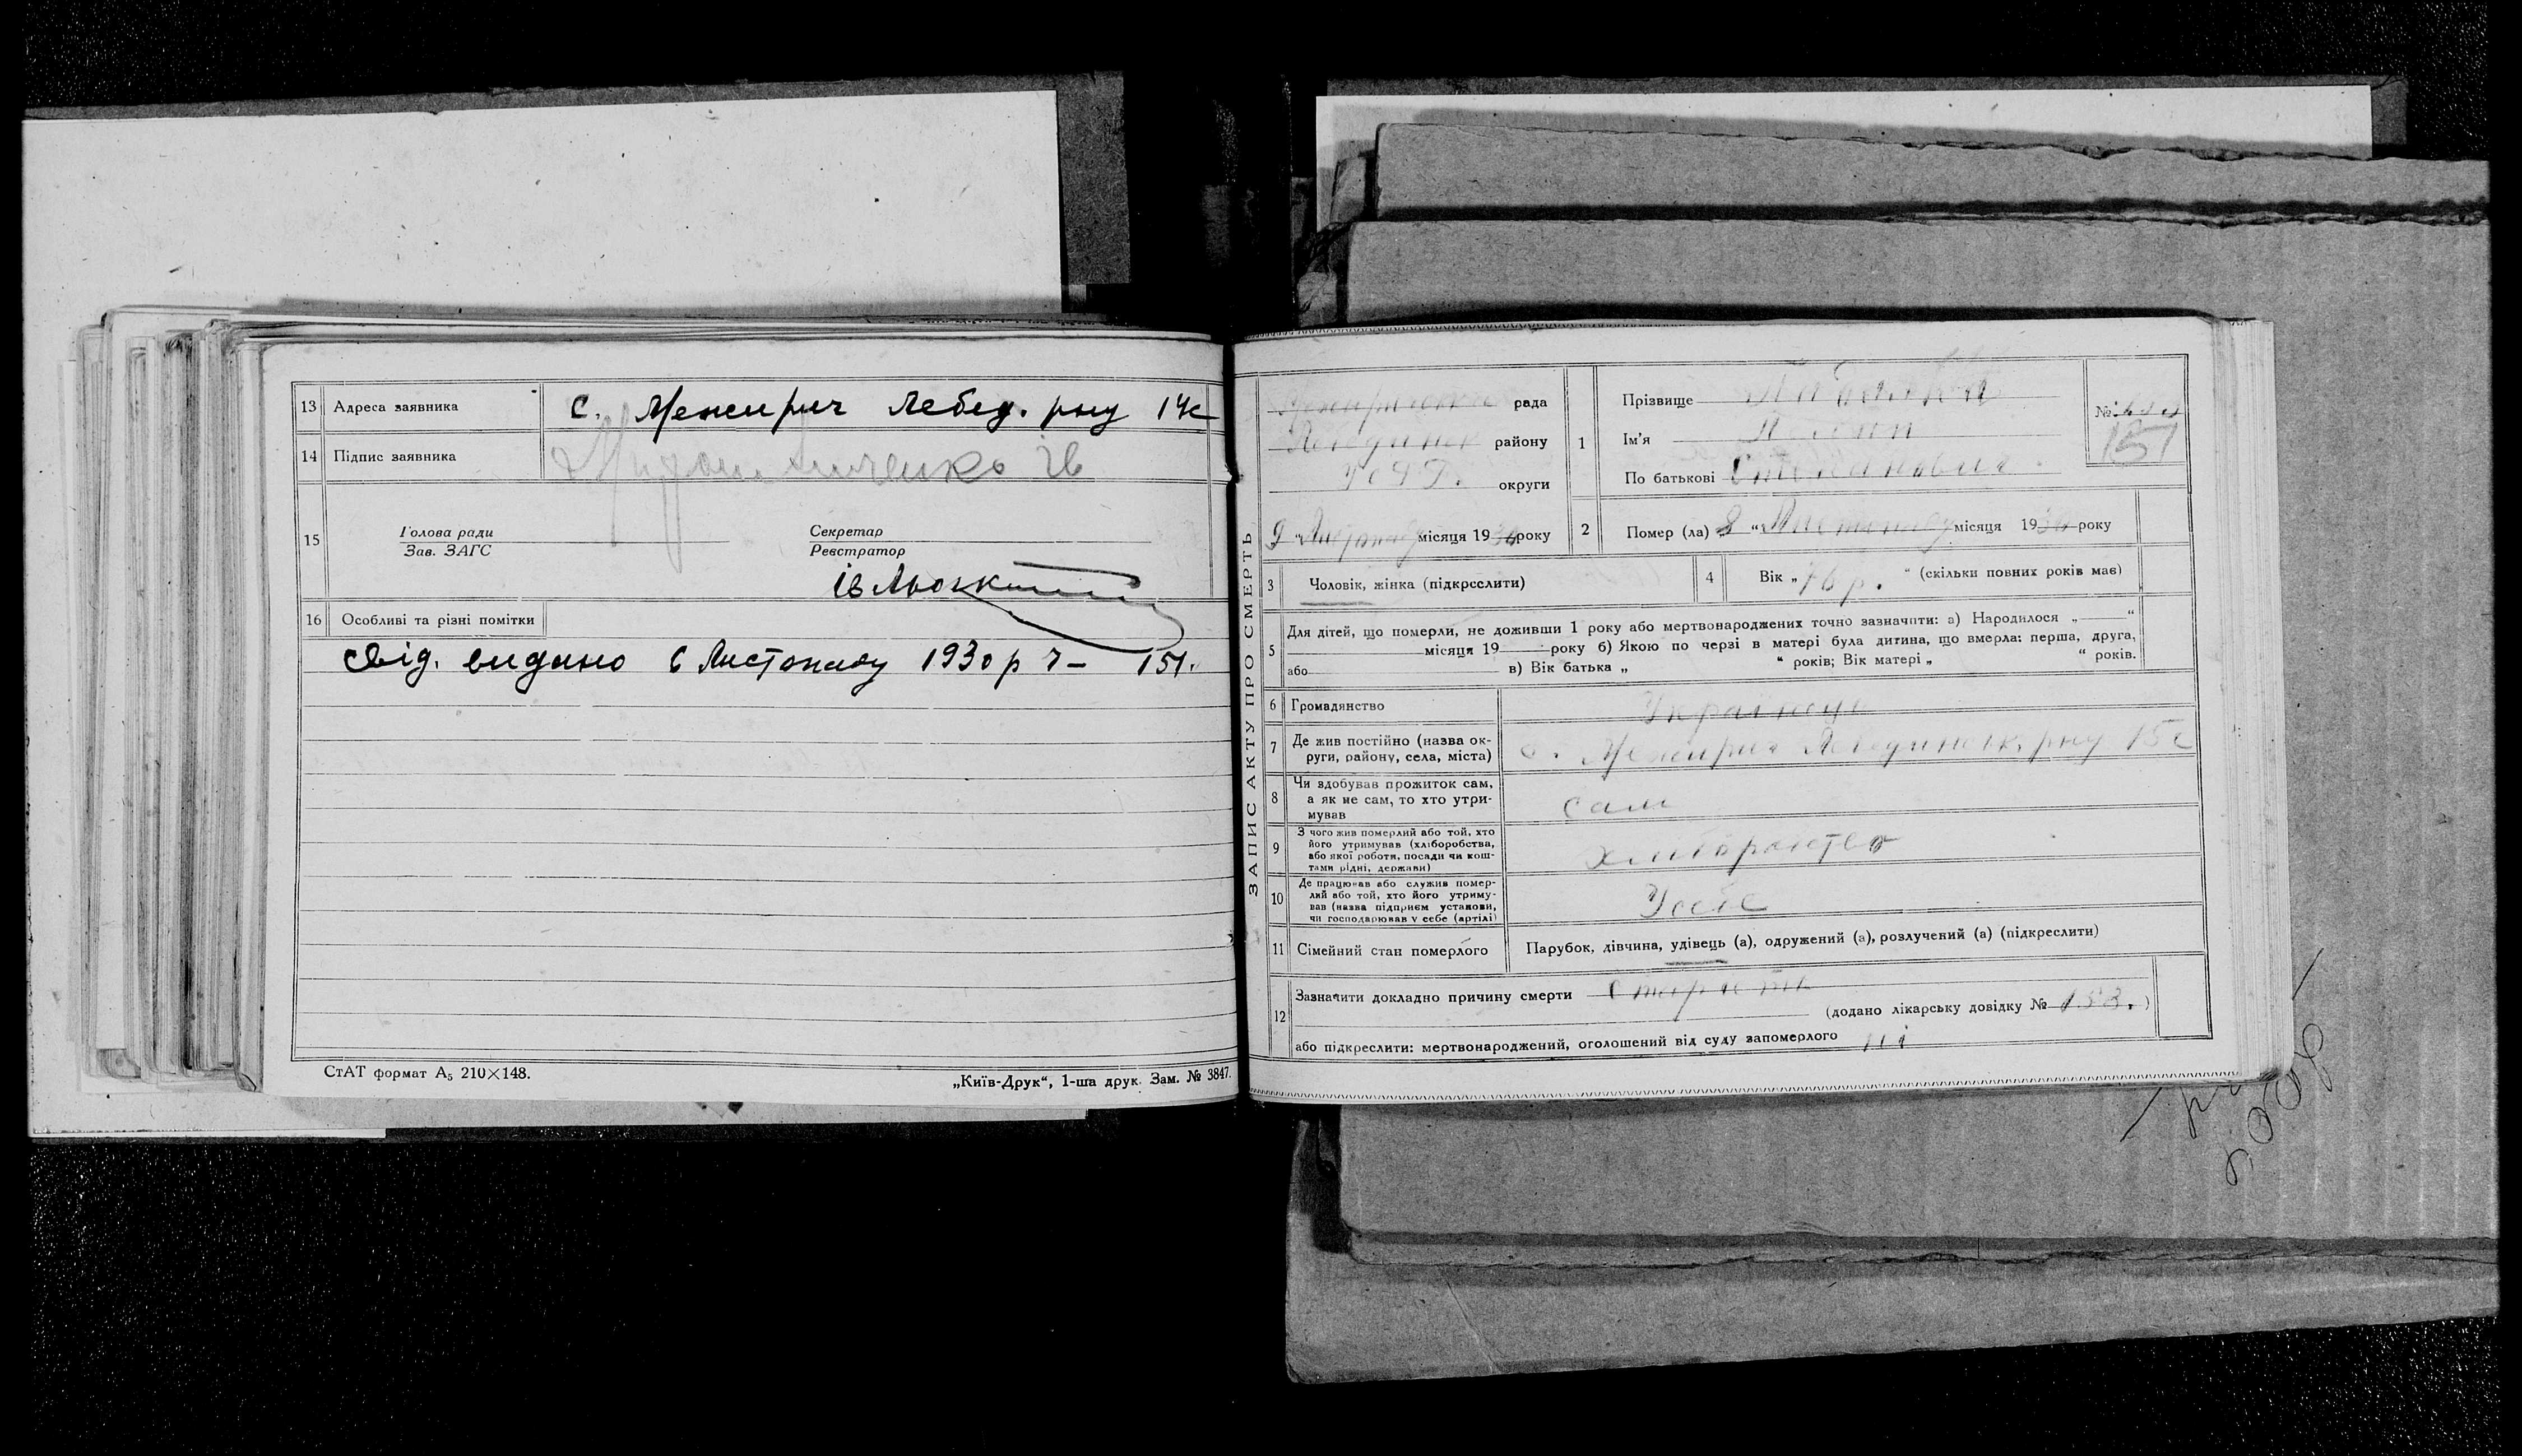 13 Адреса заявника с. Межирич Лебед. рну 14с
14 Підпис заявника
15
Голова ради
Зав. ЗАГС
Секретар
Реєстратор
16 Особливі та різні помітки
Свід. видано 6 Листопаду 1930 р Ч – 151.
СтАТ формат А₅ 210×148.
„Київ-Друк“, 1-ша друк. Зам. № 3847.
ЗАПИС АКТУ ПРО СМЕРТЬ
рада
району
округи
місяця 19 року
1 Прізвище
Ім'я
По батькові Степанович
№ 151
2 Помер (ла) 8 „ Листопаду місяця 1930 року
3 Чоловік, жінка (підкреслити)
4 Вік „ 76 р. “ (скільки повних років має)
5 Для дітей, що померли, не доживши 1 року або мертвонароджених точно зазначити: а) Народилося „ “
місяця 19 року б) Якою по черзі в матері була дитина, що вмерла: перша, друга,
або в) Вік батька „ “ років; Вік матері „ “ років.
6 Громадянство Українець
7 Де жив постійно (назва ок-
руги, району, села, міста) с. Межирич Лебединськ. рну 15с
8 Чи здобував прожиток сам,
а як не сам, то хто утри-
мував сам
9 З чого жив померлий або той, хто
його утримував (хліборобства,
або якої роботи, посади чи кош-
тами рідні, держави)
10 Де працював або служив помер-
лий або той, хто його утриму-
вав (назва підприєм установи,
чи господарював у себе (артілі) У себе
11 Сімейний стан померлого Парубок, дівчина, удівець (а), одружений (а), розлучений (а) (підкреслити)
12 Зазначити докладно причину смерти Старість
(додано лікарську довідку № 153. )
або підкреслити: мертвонароджений, оголошений від суду запомерлого